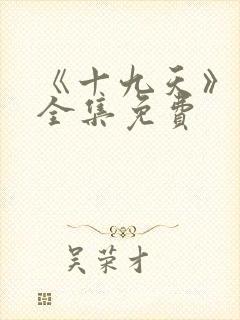 《十九天》
全集免费
吴荣才